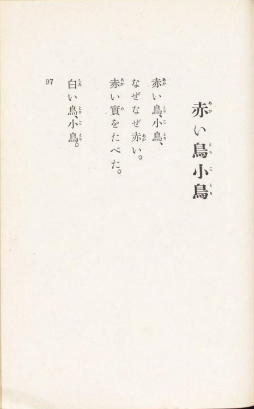 赤い鳥小鳥
赤い鳥、小鳥、
なぜなぜ赤い。
赤い實をたべた。
白い鳥、小鳥。
97